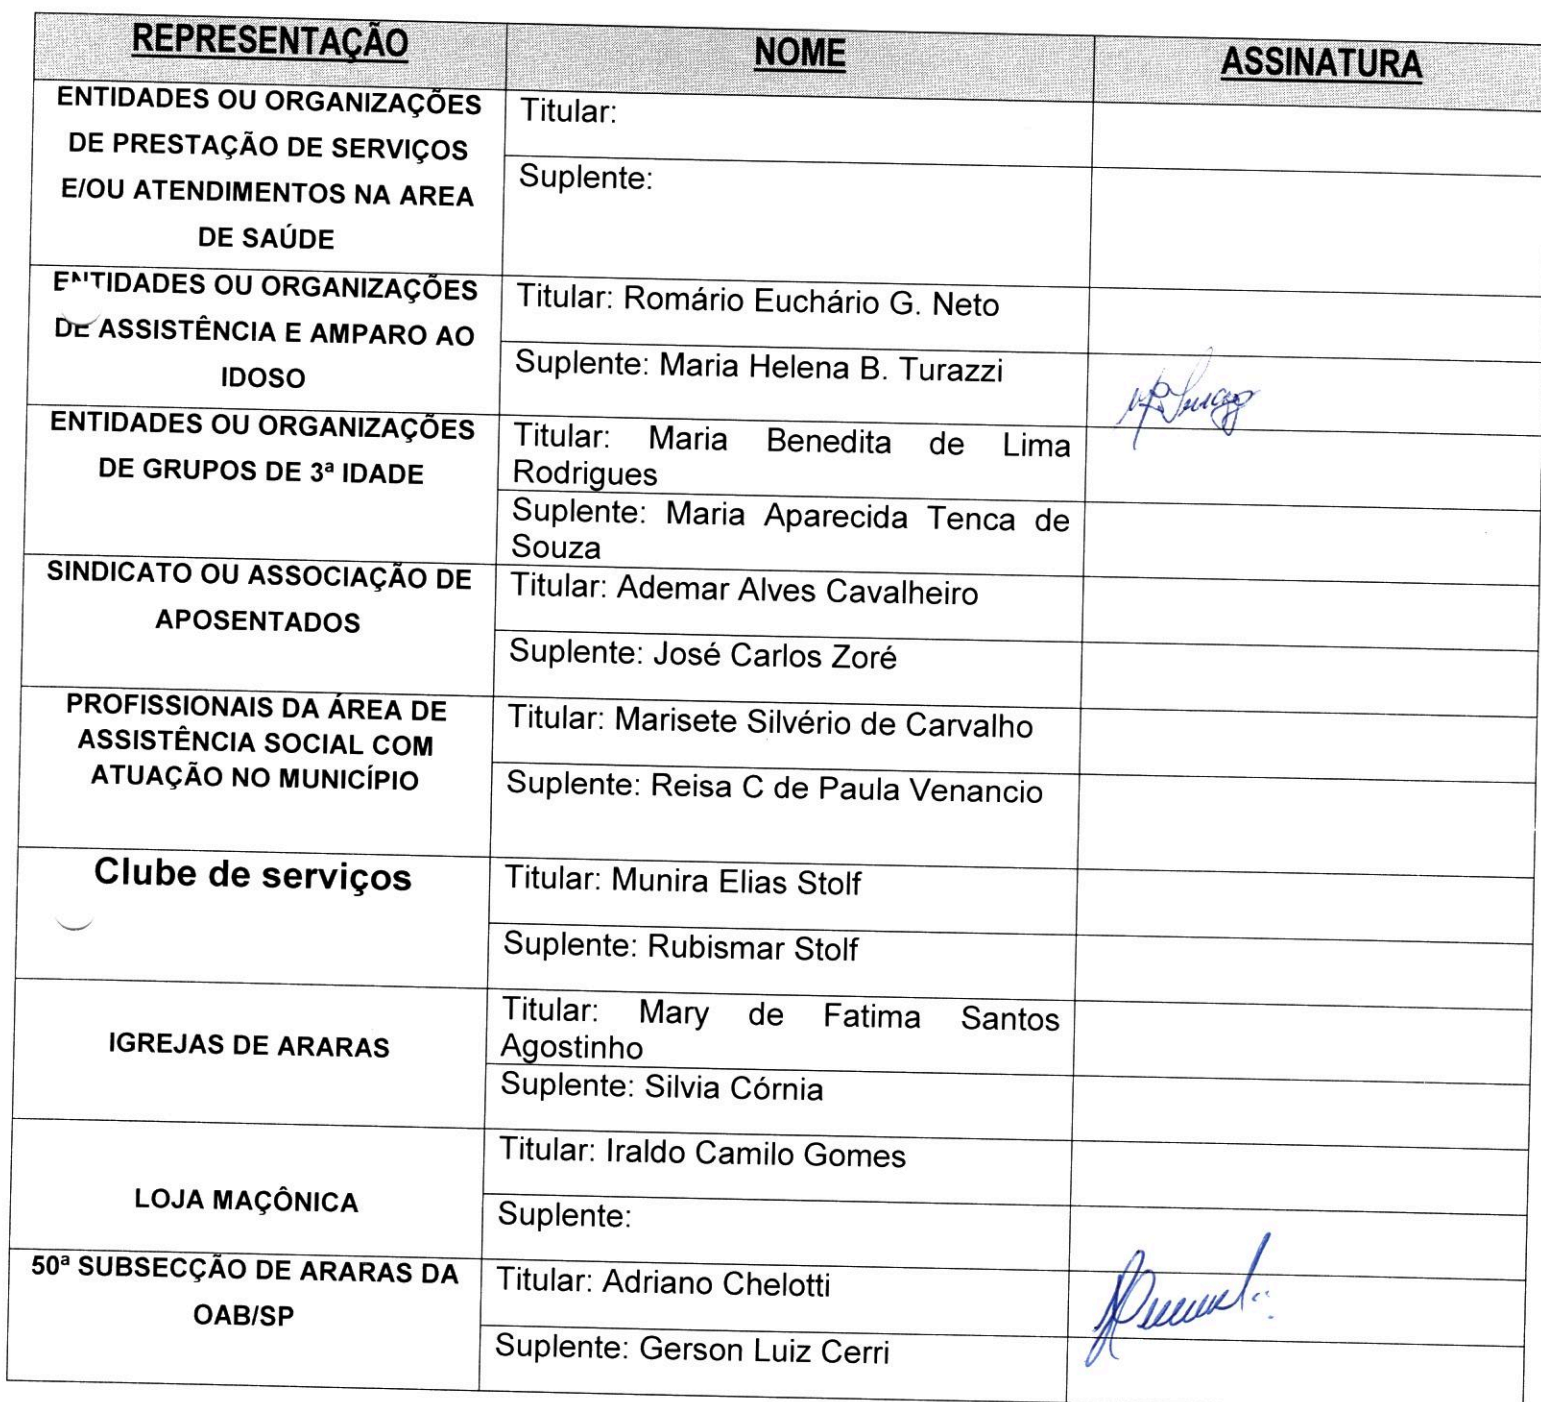 REPRESENTAÇÃO NOME ASSINATURA
ENTIDADES OU ORGANIZAÇÕES
DE PRESTAÇÃO DE SERVIÇOS
E/OU ATENDIMENTOS NA AREA
DE SAÚDE
Titular:
Suplente:
ENTIDADES OU ORGANIZAÇÕES
DE ASSISTÊNCIA E AMPARO AO
IDOSO
Titular: Romário Euchário G. Neto
Suplente: Maria Helena B. Turazzi
ENTIDADES OU ORGANIZAÇÕES
DE GRUPOS DE 3ª IDADE
Titular: Maria Benedita de Lima
Rodrigues
Suplente: Maria Aparecida Tenca de
Souza
SINDICATO OU ASSOCIAÇÃO DE
APOSENTADOS
Titular: Ademar Alves Cavalheiro
Suplente: José Carlos Zoré
PROFISSIONAIS DA ÁREA DE
ASSISTÊNCIA SOCIAL COM
ATUAÇÃO NO MUNICÍPIO
Titular: Marisete Silvério de Carvalho
Suplente: Reisa C de Paula Venancio
Clube de serviços
Titular: Munira Elias Stolf
Suplente: Rubismar Stolf
IGREJAS DE ARARAS
Titular: Mary de Fatima Santos
Agostinho
Suplente: Silvia Córnia
LOJA MAÇÔNICA
Titular: Iraldo Camilo Gomes
Suplente:
50ª SUBSECÇÃO DE ARARAS DA
OAB/SP
Titular: Adriano Chelotti
Suplente: Gerson Luiz Cerri